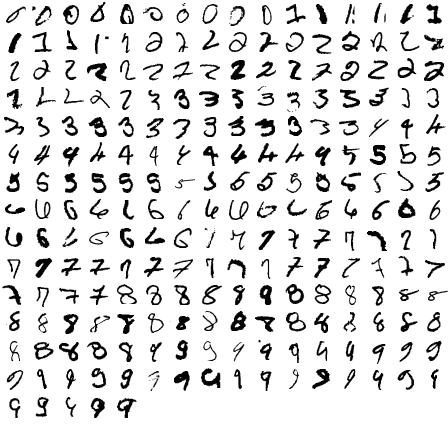 0 0 0 0 0 0 0 0 0 0 1 1 1 1 1 1
1 1 1 1 2 2 2 2 2 2 2 2 2 2 2 2
2 2 2 2 2 2 2 2 2 2 2 2 2 2 2 2
2 2 2 2 2 3 3 3 3 3 3 3 3 3 3 3
3 3 3 3 3 3 3 3 3 3 3 3 3 4 4 4
4 4 4 4 4 4 4 4 4 4 4 4 5 5 5 5
5 5 5 5 5 5 5 5 5 5 5 5 5 5 5 5
6 6 6 6 6 6 6 6 6 6 6 6 6 6 6 6
6 6 6 6 6 6 6 7 7 7 7 7 7 7 7 7
7 7 7 7 7 7 7 7 7 7 7 7 7 7 7 7
7 7 7 7 8 8 8 8 8 8 8 8 8 8 8 8
8 8 8 8 8 8 8 8 8 8 8 8 8 8 8 8
8 8 8 8 9 9 9 9 9 9 9 9 9 9 9 9
9 9 9 9 9 9 9 9 9 9 9 9 9 9 9 9
9 9 9 9 9